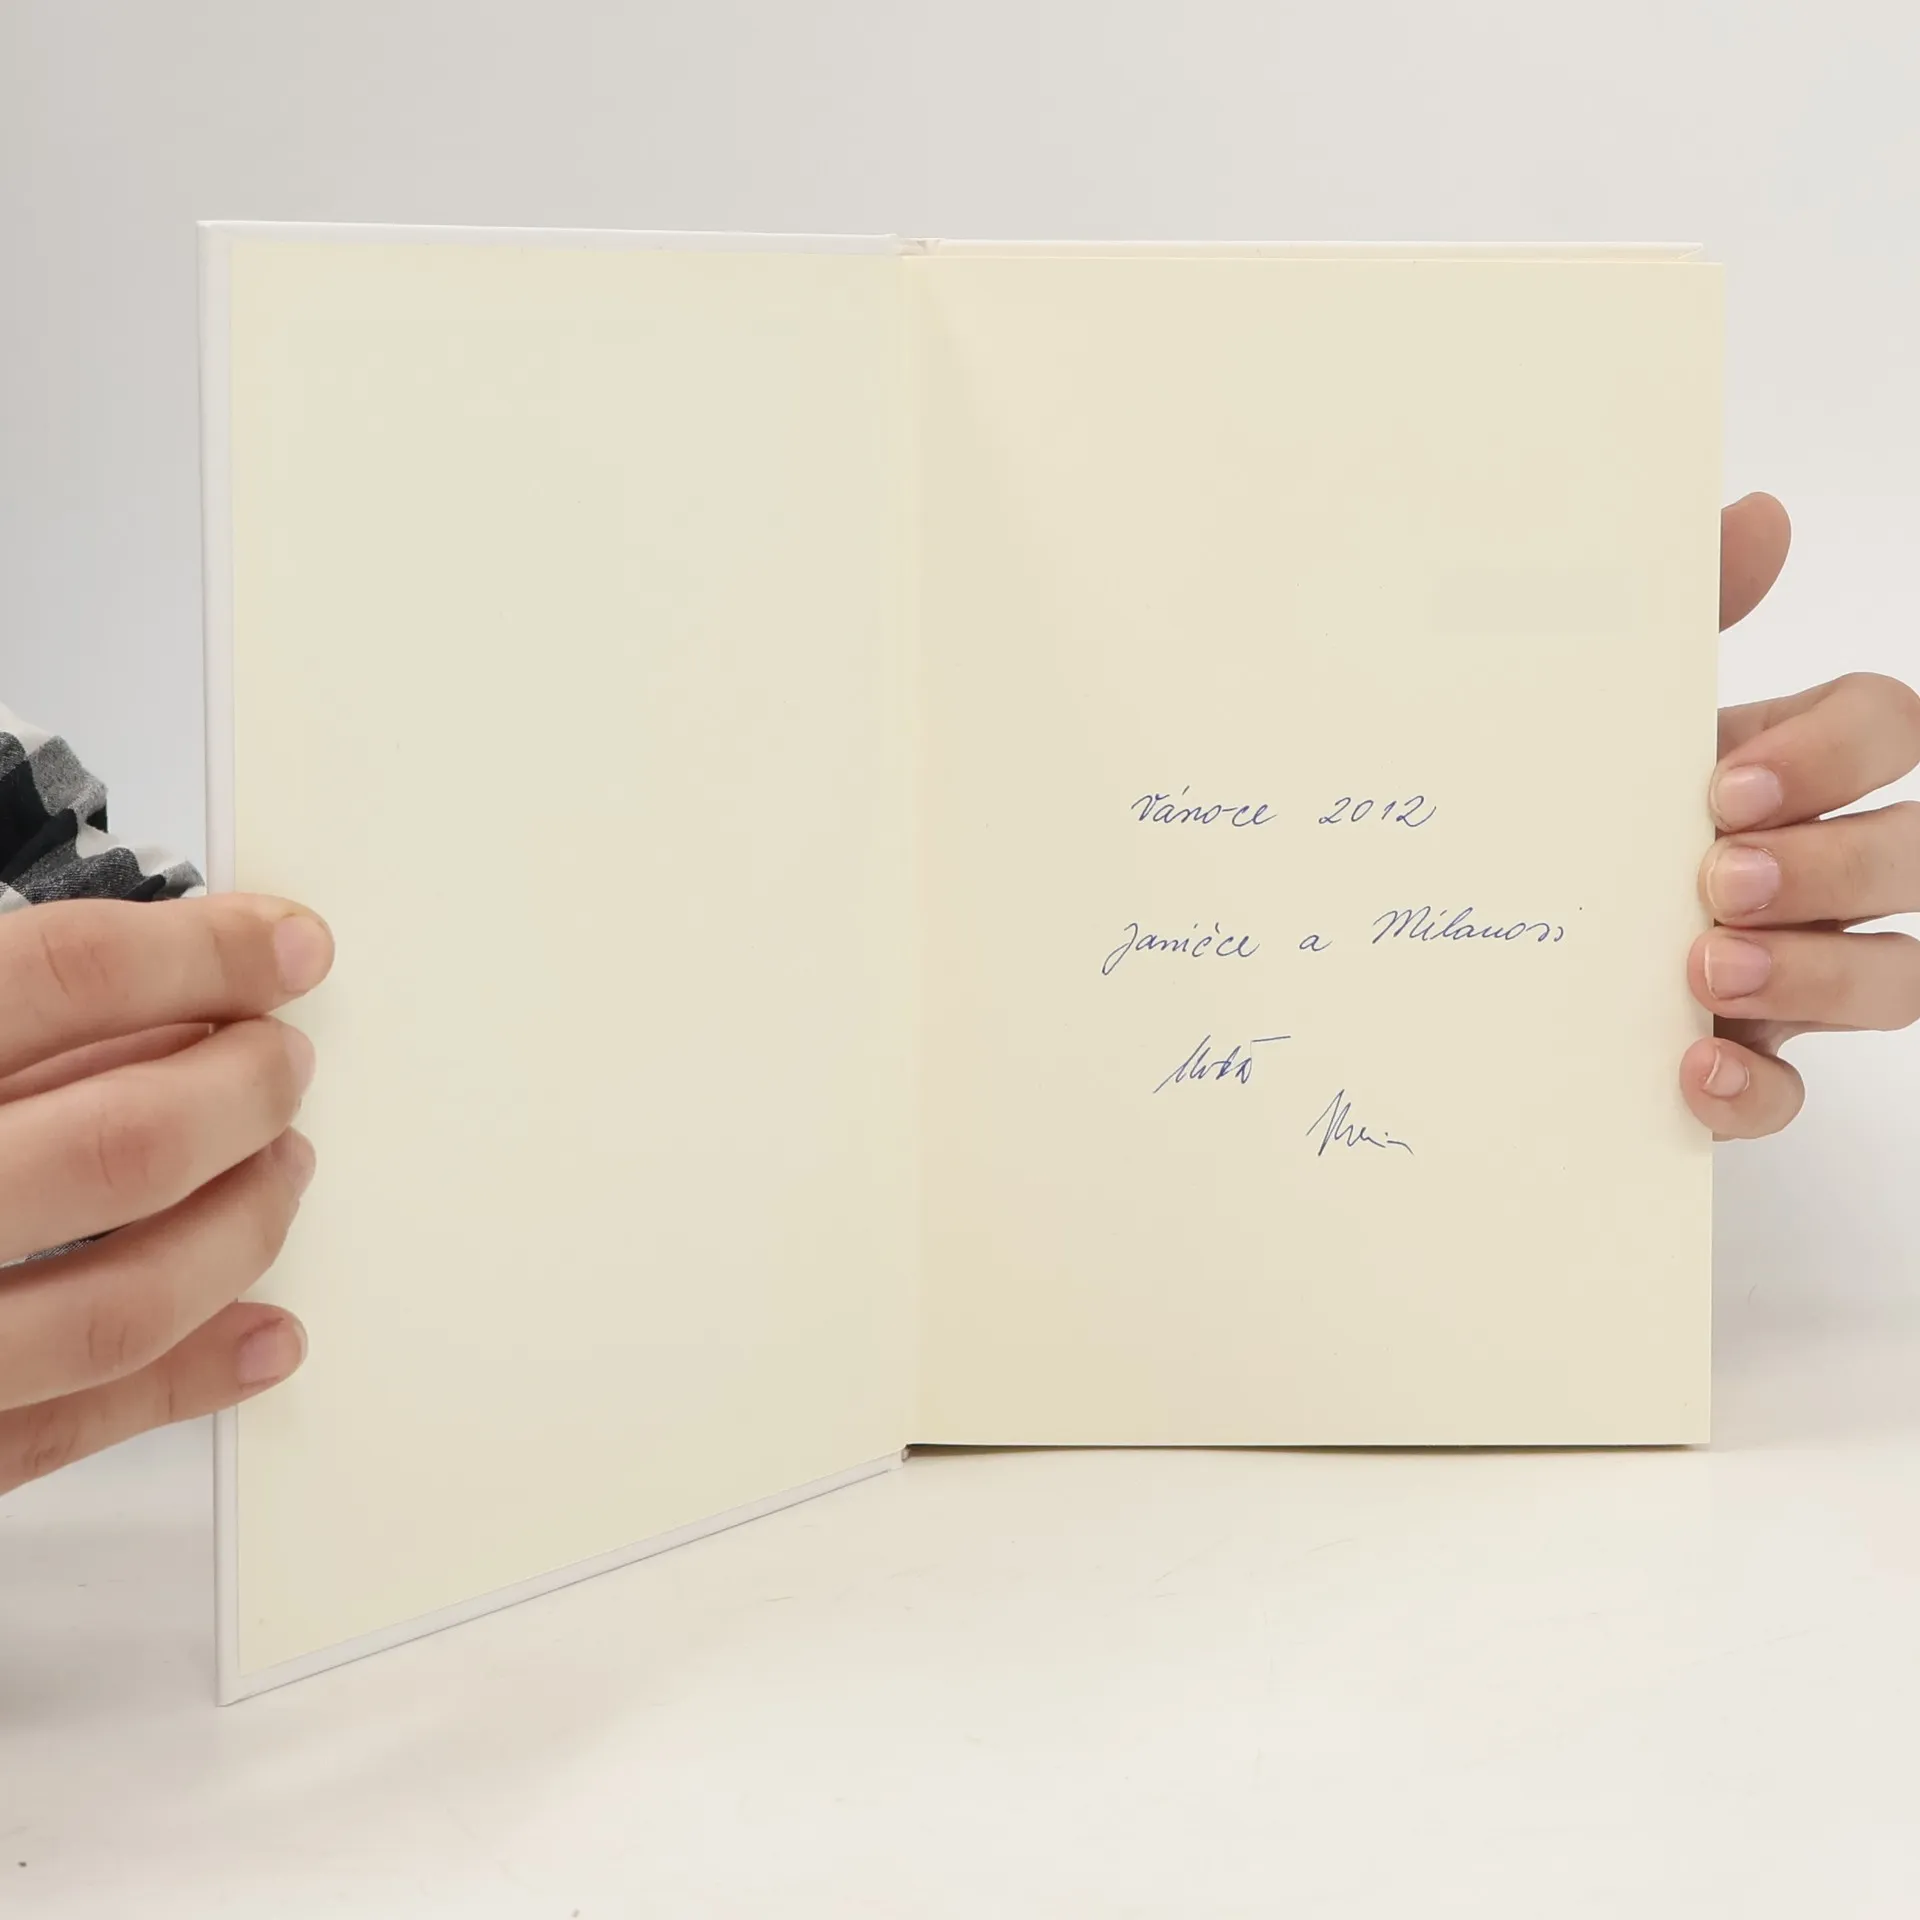 Vánoce 2012
Janičce a Milanovi